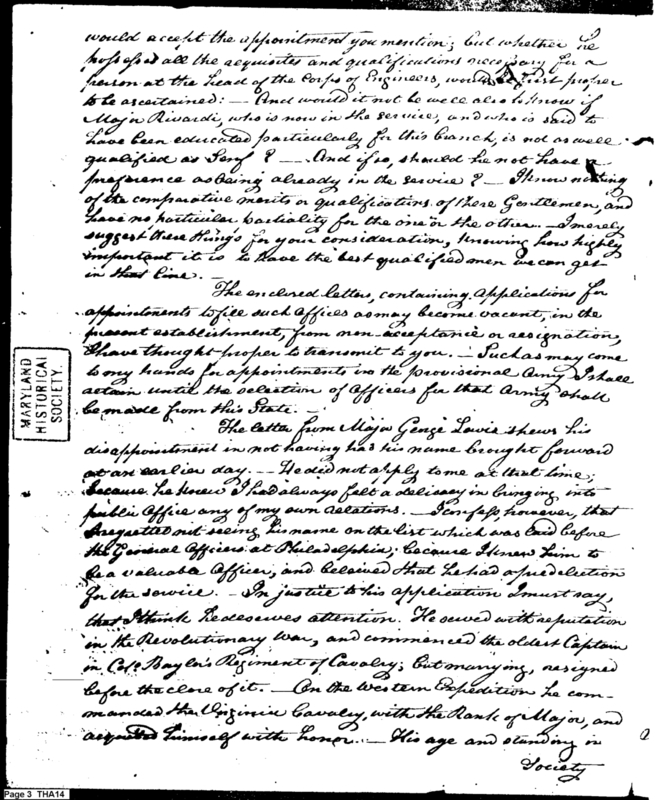 would accept the appointment you mention; but whether he
possesses all the requisites and qualifications necessary for a
person at the head of the Corps of Engineers, would first proper
to be ascertained: — And would it not be well also to know if
Major Rivardi, who is now in the service, and who is said to
have been educated particularly for this branch, is not as well
qualified as Senf? — And if so, should he not have a
preference as being already in the service? — I know nothing
of the comparative merits or qualifications of these Gentlemen, and
have no particular partiality for the one or the other. — I merely
suggest these things for your consideration, knowing how highly
important it is to have the best qualified men we can get
in that line. —
The enclosed letters, containing applications for
appointments to fill such Offices as may become vacant, in the
present establishment, from non-acceptance or resignation,
I have thought proper to transmit to you. — Such as may come
to my hands for appointments in the provisional Army I shall
retain until the selection of Officers for that Army shall
be made from this State. —
MARYLAND
HISTORICAL
SOCIETY.
The letter from Major George Lewis shews his
disappointment in not having had his name brought forward
at an earlier day. — He did not apply to me at that time;
because he knew I had always felt a delicacy in bringing into
public Office any of my own relations. — I confess, however, that
I regretted not seeing his name on the list which was laid before
the General Officers at Philadelphia; because I knew him to
be a valuable Officer, and believed that he had a predilection
for the service. — In justice to his application I must say,
that I think he deserves attention. He served with reputation
in the Revolutionary War, and commenced the oldest Captain
in Colo. Baylor's Regiment of Cavalry; but marrying, resigned
before the close of it. — On the Western Expedition he com-
manded the Virginia Cavalry, with the Rank of Major, and
acquitted himself with honor. — His age and standing in
Society
Page 3 THA14